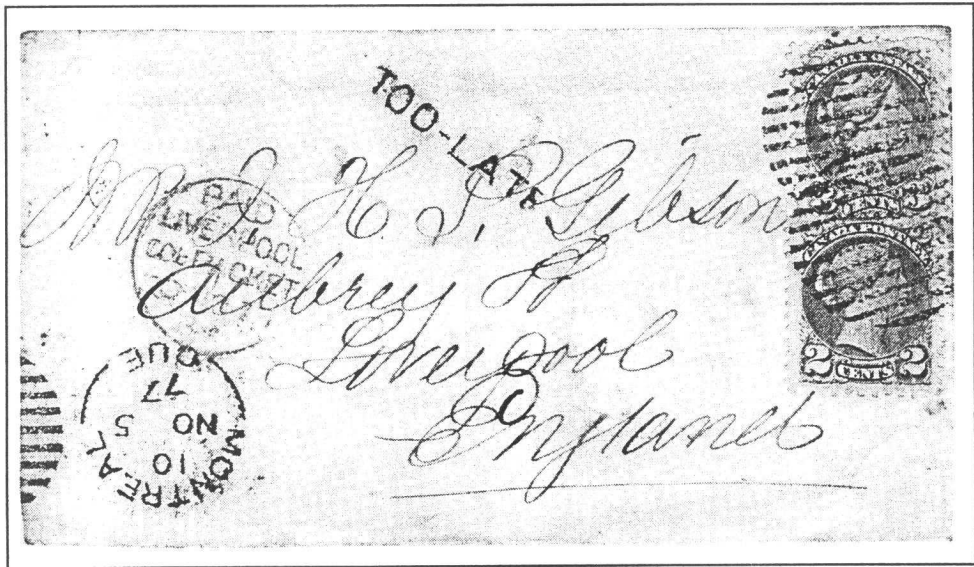 TOO-LATE
Mr J H S. Gibson
Aubrey St
Liverpool
England
PAID
LIVERPOOL
COL. PACKET
MONTREAL
10
NO 5
77
QUE
CANADA POSTAGE
2 CENTS 2
CANADA POSTAGE
2 CENTS 2